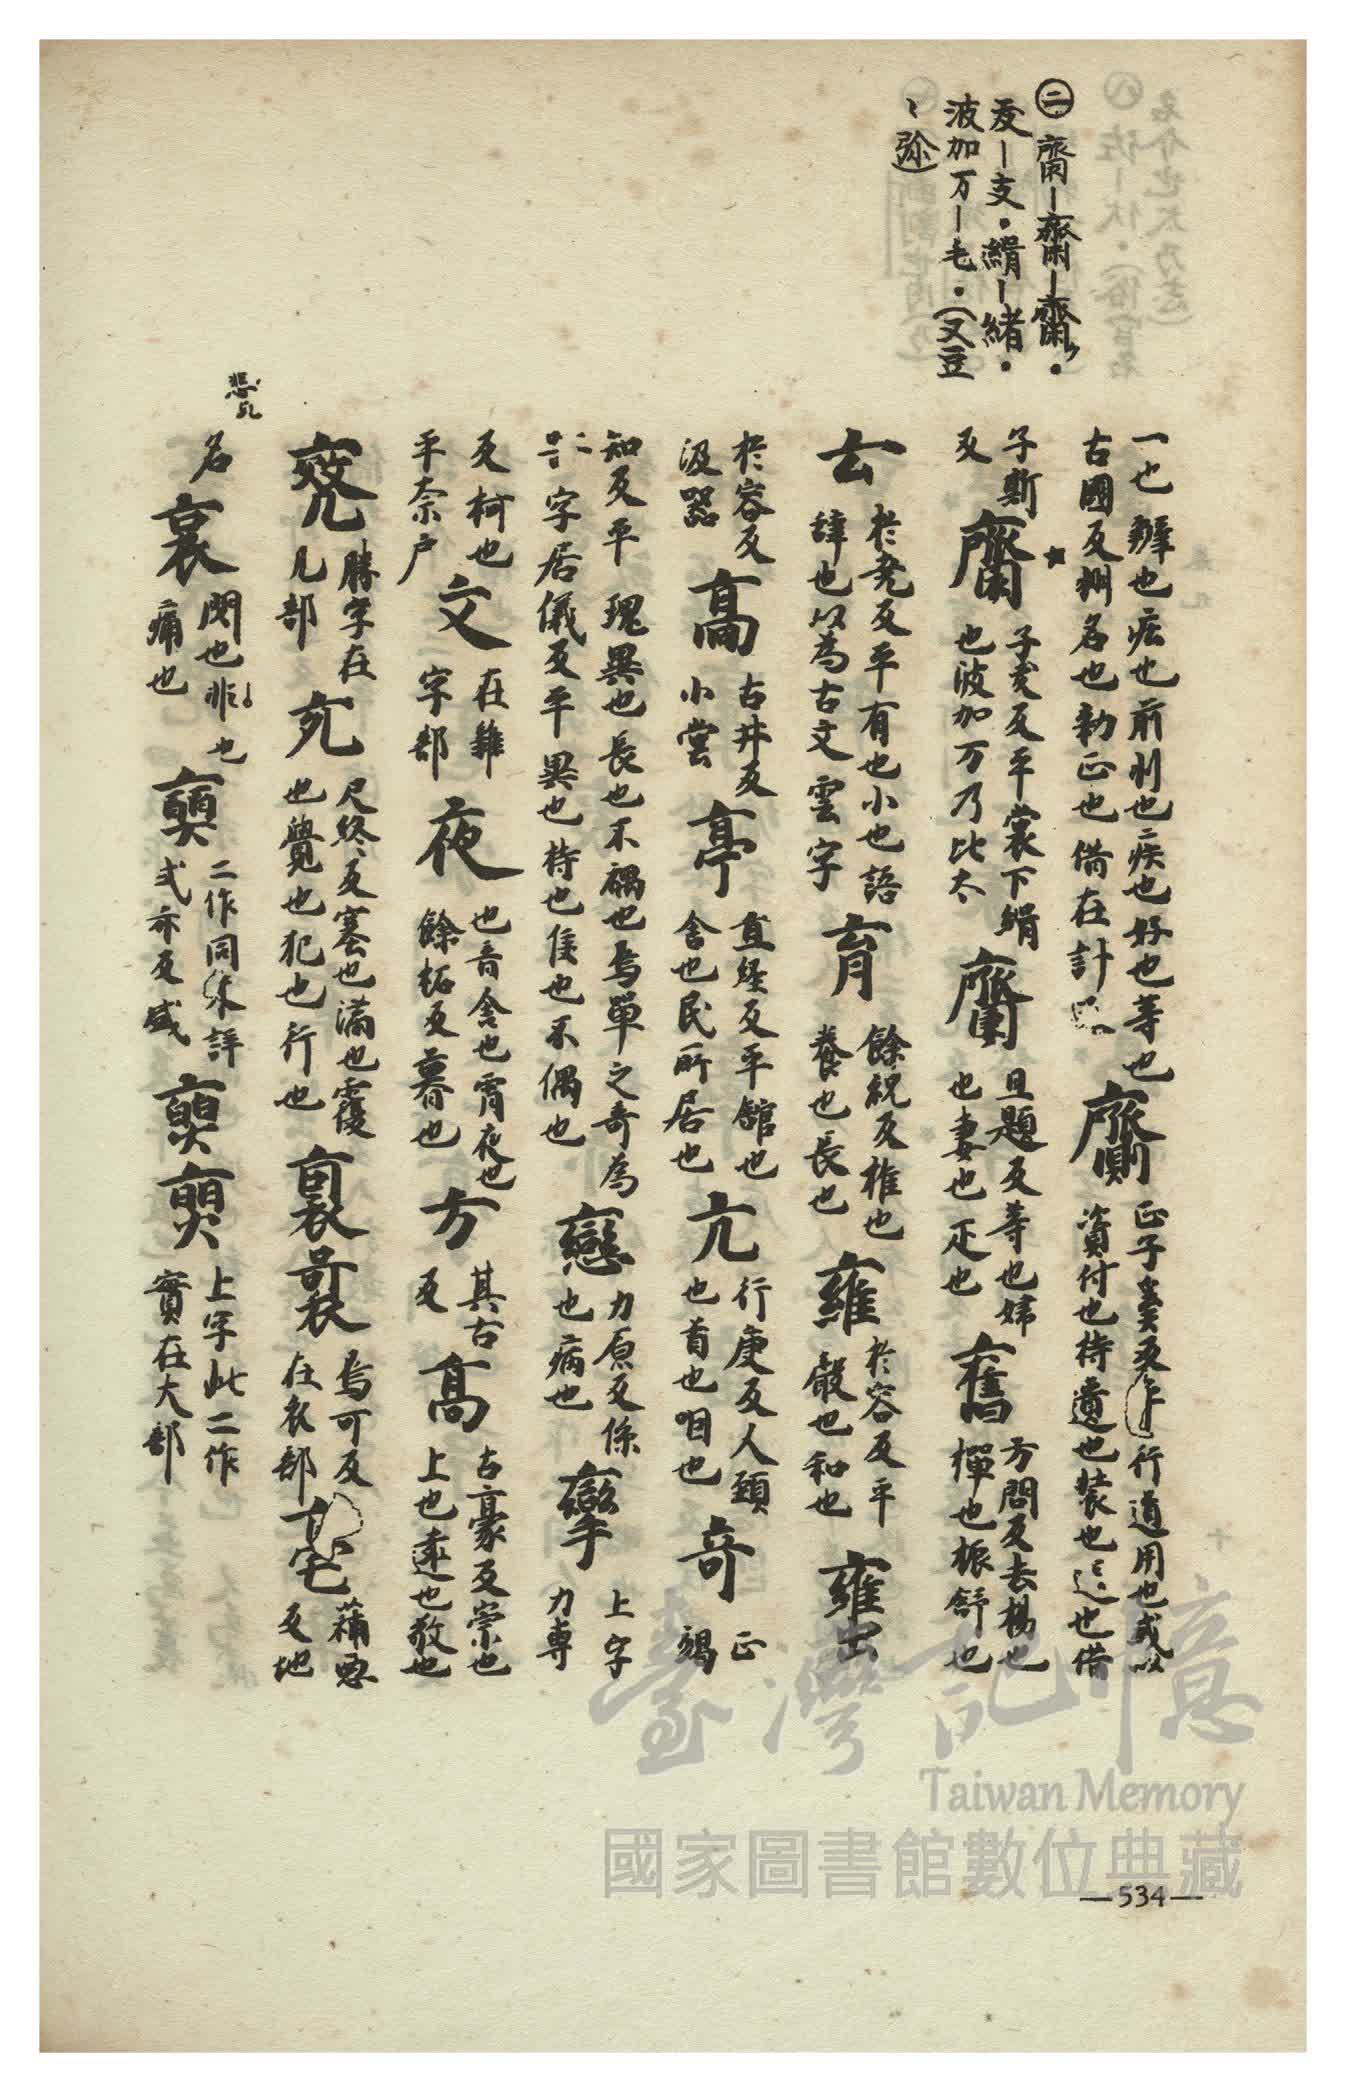 ㊁
齋
一支・絹一緒・
波加万一毛・(又豆
、弥)
一也辨也疾也前川也疾也好也等也
古國反州名也勅正也借在計
正子奚反作行道用也或以
資付也持遺也裝也送也借
子斯
反
子奚反平裳下絹
也波加万乃比太
旦題反等也婦
也妻也疋也
奮
方問反去楊也
樿也振舒也
云
於尭反平有也小也語
辞也以為古文雲字
育
餘祝反椎也
養也長也
雍
於容反平
穀也和也
於容反
汲器
髙
古井反
小堂
亭
直経反平舘也
舎也民所居也
亢
行庚反人頸
也首也咽也
竒
正
竭
知反平瑰異也長也不耦也焉單之竒為
字居儀反平異也持也隻也不偶也
戀
力原反係
也病也
攣
上字
力専
反柯也
平奈戸
文
在雜
字部
夜
也音舎也宵夜也
餘柘反暮也
方
其古
反
髙
古豪反崇也
上也遠也敬也
勝字在
儿部
充
尺終反塞也滿也覆
也覺也犯也行也
裏
焉可反
在衣部
蒱
反地
悲
名
哀
閔也非也
痛也
二作同朱詳
式亦反盛
奭
上字此二作
實在大部
臺灣記憶
Taiwan Memory
國家圖書館數位典藏
—534—